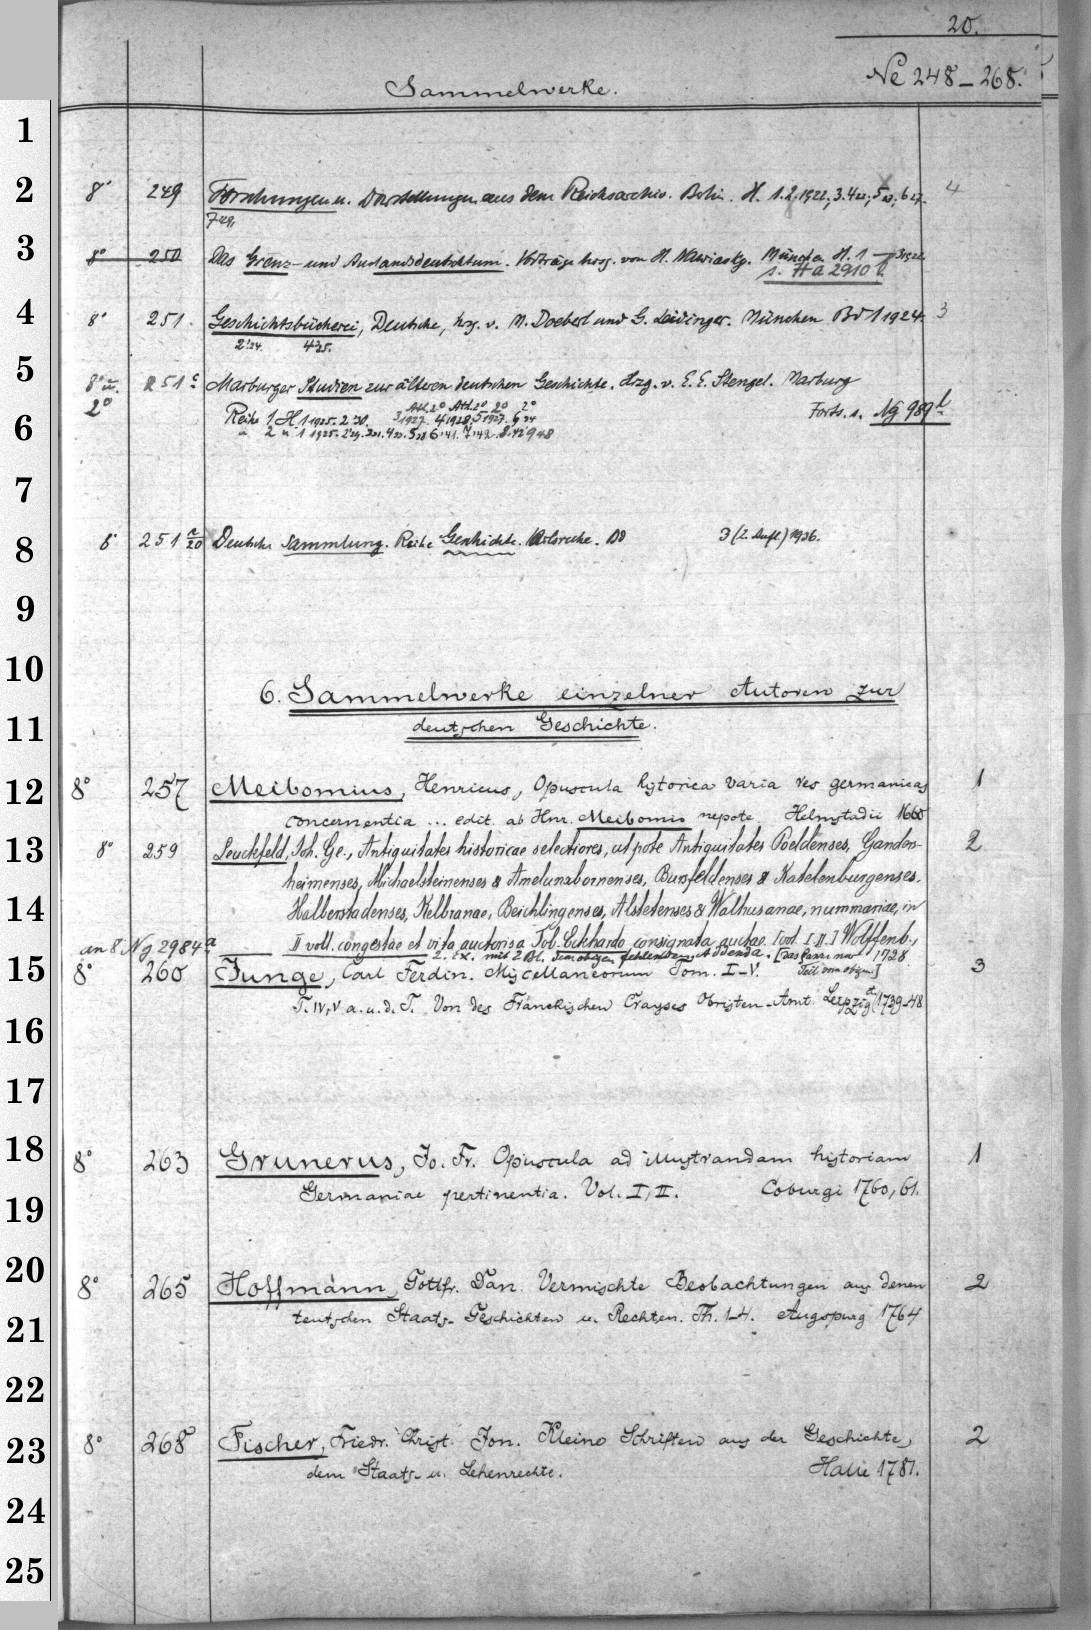 20.
Ne 248-268.
Sammelwerke.
1
2 8° 249 Forschungen u. Darstellungen aus dem Reichsarchiv. Berlin. H. 1.2.1922, 3.4 22, 5 23, 6 27. 4
7 29,
3 8° 250 Das Grenz- und Auslandsdeutschtum. Vorträge hrsg. von H. Nawiasky. München H. 1 - 3
s. Ha 2910 l.
4 8° 251. Geschichtsbücherei, Deutsche, hrg. v. M. Doeberl und G. Leidinger. München Bd 1 1924. 3
2 '24. 4 '25.
5 8° u. 2° 251 c Marburger Studien zur älteren deutschen Geschichte. Hrzg. v. E. E. Stengel. Marburg
6 Reihe 1 H 1 1925. 2 '30. 3 1927. 4 1928. 5 1927. 6 Forts. s. Ng 989 l
2 1 1925.
7
8 8° 251 a/20 Deutsche Sammlung. Reihe Geschichte. Karlsruhe. Bd 3 (2. Aufl.) 1936.
9
10 6. Sammelwerke einzelner Autoren zur
11 deutschen Geschichte.
12 8° 257 Meibomius, Henricus, Opuscula hystorica varia res germanicas 1
concernentia ... edit. ab Hnr. Meibomio nepote. Helmstadii 1660
13 8° 259 Leuckfeld, Joh. Ge., Antiquitates historicae selectiores, utpote Antiquitates Poeldenses, Ganders- 2
heimenses, Michaelsteinenses & Amelunxbornenses, Bursfeldenses & Katelenburgenses,
14 Halberstadenses, Kelbranae, Beichlingenses, Alstetenses & Walhusanae, nummariae, in
II voll. congestae et vita auctoris a Tob. Eckhardo consignata auctae. [Vol. I. II.] Wolffenb.,
an 8° Ng 2984 a 2. Ex. mit 2 Bl. dem obigen fehlenden addenda. [das Ganze nur 1728
15 8° 260 Junge, Carl Ferdin. Myscellaneorum Tom. I-V. Teil vom obigen] 3
T. IV, V a. u. d. T. Von des Fränckischen Crayses Obristen-Amt. Leipzig 1739-48
16
17
18 8° 263 Grunerus, Jo. Fr. Opuscula ad illustrandam historiam 1
19 Germaniae pertinentia. Vol. I, II. Coburgi 1760, 61.
20 8° 265 Hoffmann, Gottfr. Dan. Vermischte Beobachtungen aus denen 2
21 teutschen Staats- Geschichten u. Rechten. Th. 1-4. Augspurg 1764
22
23 8° 268 Fischer, Friedr. Christ. Jon. Kleine Schriften aus der Geschichte, 2
dem Staats- u. Lehenrechte. Halle 1781.
24
25